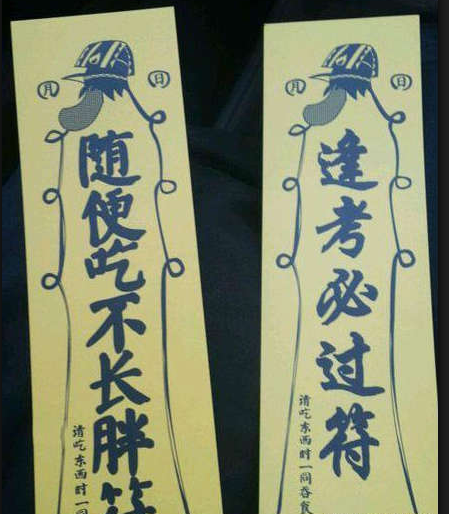 月
日
随便吃不长胖符
请吃东西时一同
月
日
逢考必过符
请吃东西时一同吞食